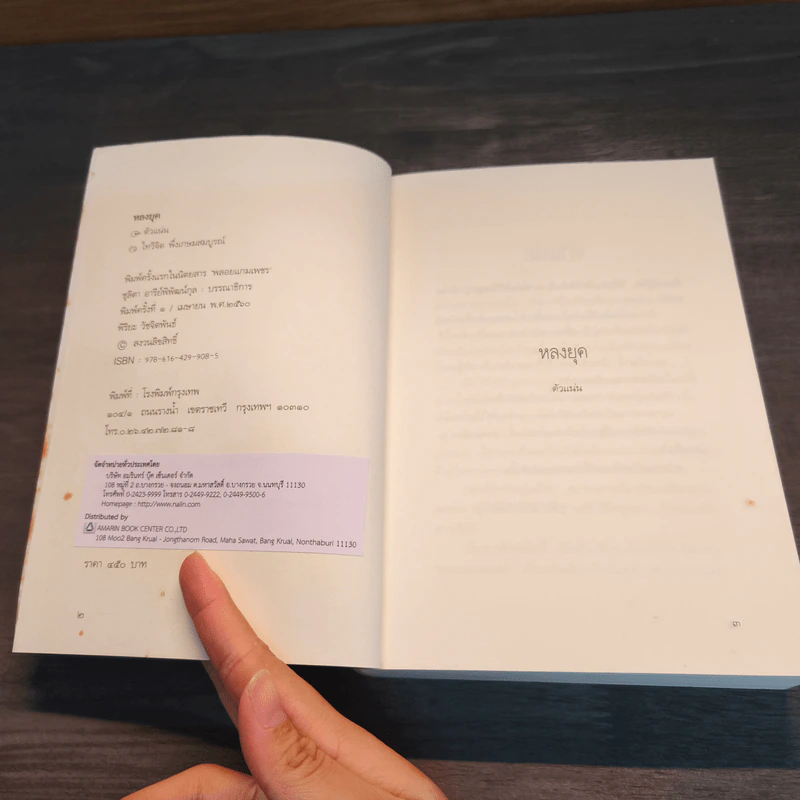 หลงยุค
๑ ตัวแน่น
๑ ไทวิจิต พึ่งเกษมสมบูรณ์
พิมพ์ครั้งแรกในนิตยสาร "พลอยแกมเพชร"
ชุลิตา อารีย์พิพัฒน์กุล : บรรณาธิการ
พิมพ์ครั้งที่ ๑ / เมษายน พ.ศ.๒๕๖๐
พิริยะ วัชจิตพันธ์
© สงวนลิขสิทธิ์
ISBN : 978-616-429-908-5
พิมพ์ที่ : โรงพิมพ์กรุงเทพ
๑๐๔/๑ ถนนรางน้ำ เขตราชเทวี กรุงเทพฯ ๑๐๓๑๐
โทร.๐.๒๖.๔๒.๗๒.๘๑-๘
จัดจำหน่ายทั่วประเทศโดย
บริษัท อมรินทร์ บุ๊ค เซ็นเตอร์ จำกัด
108 หมู่ที่ 2 ถ.บางกรวย - จงถนอม ต.มหาสวัสดิ์ อ.บางกรวย จ.นนทบุรี 11130
โทรศัพท์ 0-2423-9999 โทรสาร 0-2449-9222, 0-2449-9500-6
Homepage : http://www.naiin.com
Distributed by
AMARIN BOOK CENTER CO.,LTD
108 Moo2 Bang Kruai - Jongthanom Road, Maha Sawat, Bang Kruai, Nonthaburi 11130
ราคา ๔๕๐ บาท
๒
หลงยุค
ตัวแน่น
๓